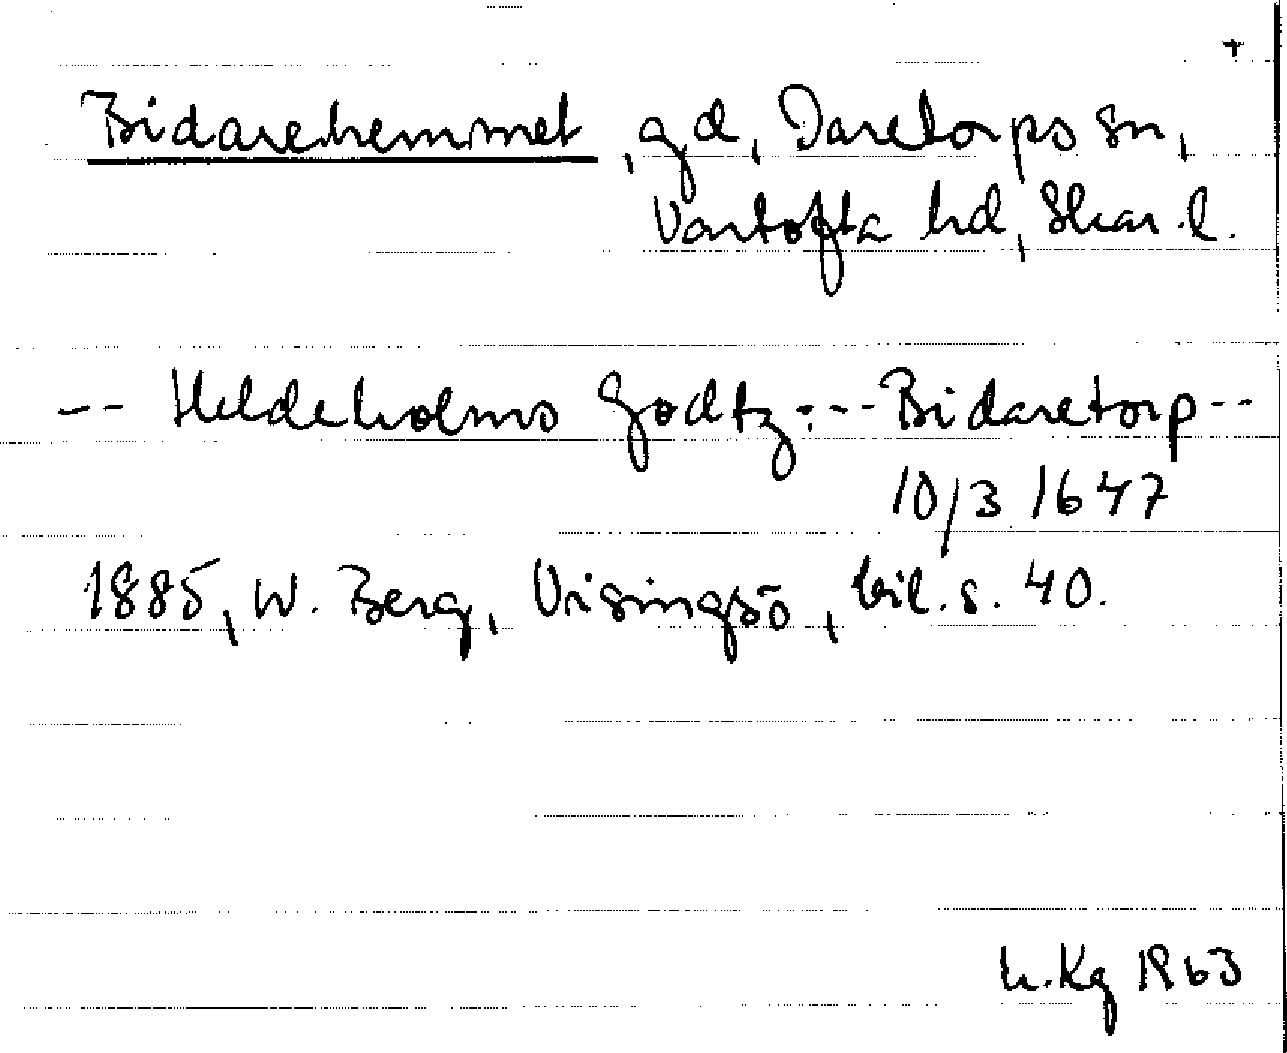 +
Bidarehemmet, gd, Daretorps sn,
Vartofta hd, Skar. l.
-- Heldeholms Godtz --- Bidaretorp --
10/3 1647
1885, W. Berg, Visingsö, bil. s. 40.
h.Kg 1963